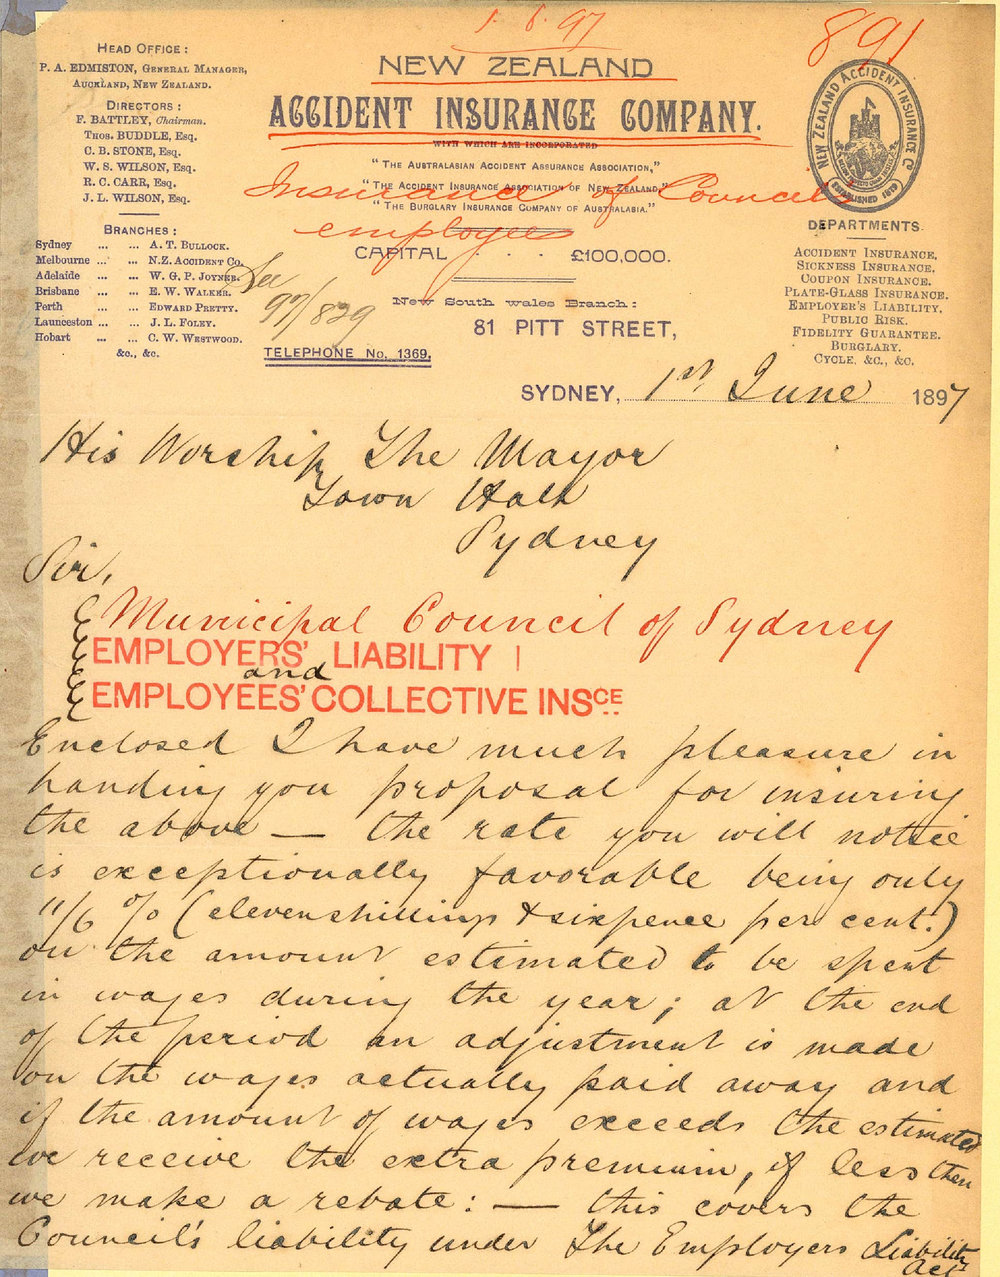 1. 6. 97
891
HEAD OFFICE:
P. A. EDMISTON, GENERAL MANAGER,
AUCKLAND, NEW ZEALAND.
DIRECTORS:
F. BATTLEY, Chairman.
THOS. BUDDLE, ESQ.
C. B. STONE, ESQ.
W. S. WILSON, ESQ.
R. C. CARR, ESQ.
J. L. WILSON, ESQ.
BRANCHES:
Sydney ... ... A. T. BULLOCK.
Melbourne ... ... N.Z. ACCIDENT CO.
Adelaide ... ... W. G. P. JOYNER.
Brisbane ... ... E. W. WALKER.
Perth ... ... EDWARD PRETTY.
Launceston ... ... J. L. FOLEY.
Hobart ... ... C. W. WESTWOOD.
&c., &c.
See
97/829
NEW ZEALAND
ACCIDENT INSURANCE COMPANY.
WITH WHICH ARE INCORPORATED
"THE AUSTRALASIAN ACCIDENT ASSURANCE ASSOCIATION,"
"THE ACCIDENT INSURANCE ASSOCIATION OF NEW ZEALAND,"
"THE BURGLARY INSURANCE COMPANY OF AUSTRALASIA."
Insurance of Council
employees
CAPITAL . . . £100,000.
New South Wales Branch:
81 PITT STREET,
TELEPHONE No. 1369.
NEW ZEALAND ACCIDENT INSURANCE CO
ESTABLISHED 1879
DEPARTMENTS
ACCIDENT INSURANCE,
SICKNESS INSURANCE,
COUPON INSURANCE.
PLATE-GLASS INSURANCE.
EMPLOYER'S LIABILITY,
PUBLIC RISK.
FIDELITY GUARANTEE.
BURGLARY.
CYCLE, &C., &C.
SYDNEY, 1st June 1897
His Worship The Mayor
Town Hall
Sydney
Sir,
Municipal Council of Sydney
EMPLOYERS' LIABILITY
and
EMPLOYEES' COLLECTIVE INSCE
Enclosed I have much pleasure in
handing you proposal for insuring
the above — the rate you will notice
is exceptionally favorable being only
11/6 % (eleven shillings & sixpence per cent.)
on the amount estimated to be spent
in wages during the year; at the end
of the period an adjustment is made
on the wages actually paid away and
if the amount of wages exceeds the estimated
we receive the extra premium, if less then
we make a rebate: — this covers the
Council's liability under The Employers Liability
Act